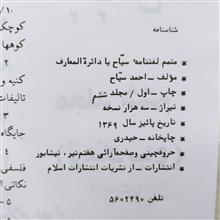 شناسنامه
متمم لغتنامه سیّاح یا دائرة المعارف
مؤلف ـ احمد سیّاح
چاپ ـ اول / مجلد ششم
تیراژ ـ سه هزار نسخه
تاریخ پائیز سال ۱۳۶۹
چاپخانه ـ حیدری
حروفچینی وصفحه‌آرائی هفتم‌تیر، نیشابور
انتشارات ـ از نشریات انتشارات اسلام
تلفن ۵۶۰۲۴۹۰
۱۰/
کوچک
کوهها
۲
کنیه و
تالیفات
۳
جایگاه
۴
فلسفی
نکاتی ا